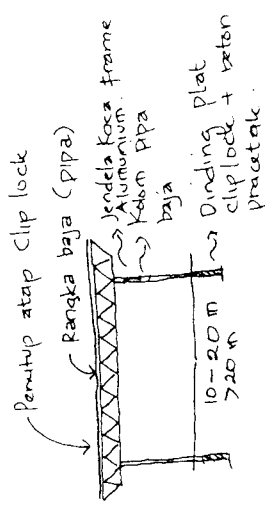 Penutup atap Clip lock
Rangka baja (pipa)
Jendela Kaca frame
Alumunium.
Kolom Pipa
baja
10-20 m
>20 m
Dinding plat
clip lock + beton
pracetak.